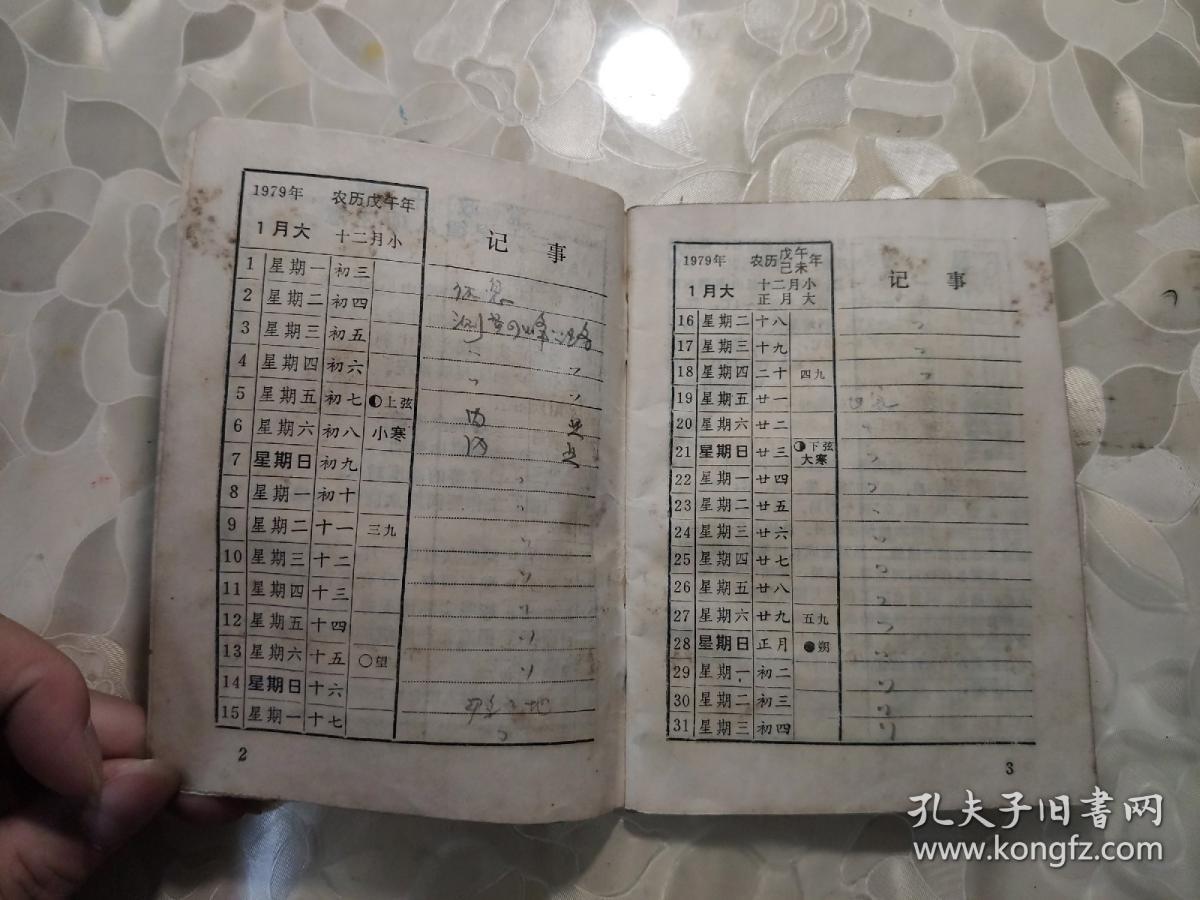 1979年 农历戊午年
1月大 十二月小
记事
1 星期一 初三
2 星期二 初四
3 星期三 初五
4 星期四 初六
5 星期五 初七 上弦
6 星期六 初八 小寒
7 星期日 初九
8 星期一 初十
9 星期二 十一 三九
10 星期三 十二
11 星期四 十三
12 星期五 十四
13 星期六 十五 望
14 星期日 十六
15 星期一 十七
2
1979年 农历戊午己未年
1月大 十二月小 正月大
记事
16 星期二 十八
17 星期三 十九
18 星期四 二十 四九
19 星期五 廿一
20 星期六 廿二
21 星期日 廿三 下弦 大寒
22 星期一 廿四
23 星期二 廿五
24 星期三 廿六
25 星期四 廿七
26 星期五 廿八
27 星期六 廿九 五九
28 星期日 正月 朔
29 星期一 初二
30 星期二 初三
31 星期三 初四
3
孔夫子旧书网
www.kongfz.com